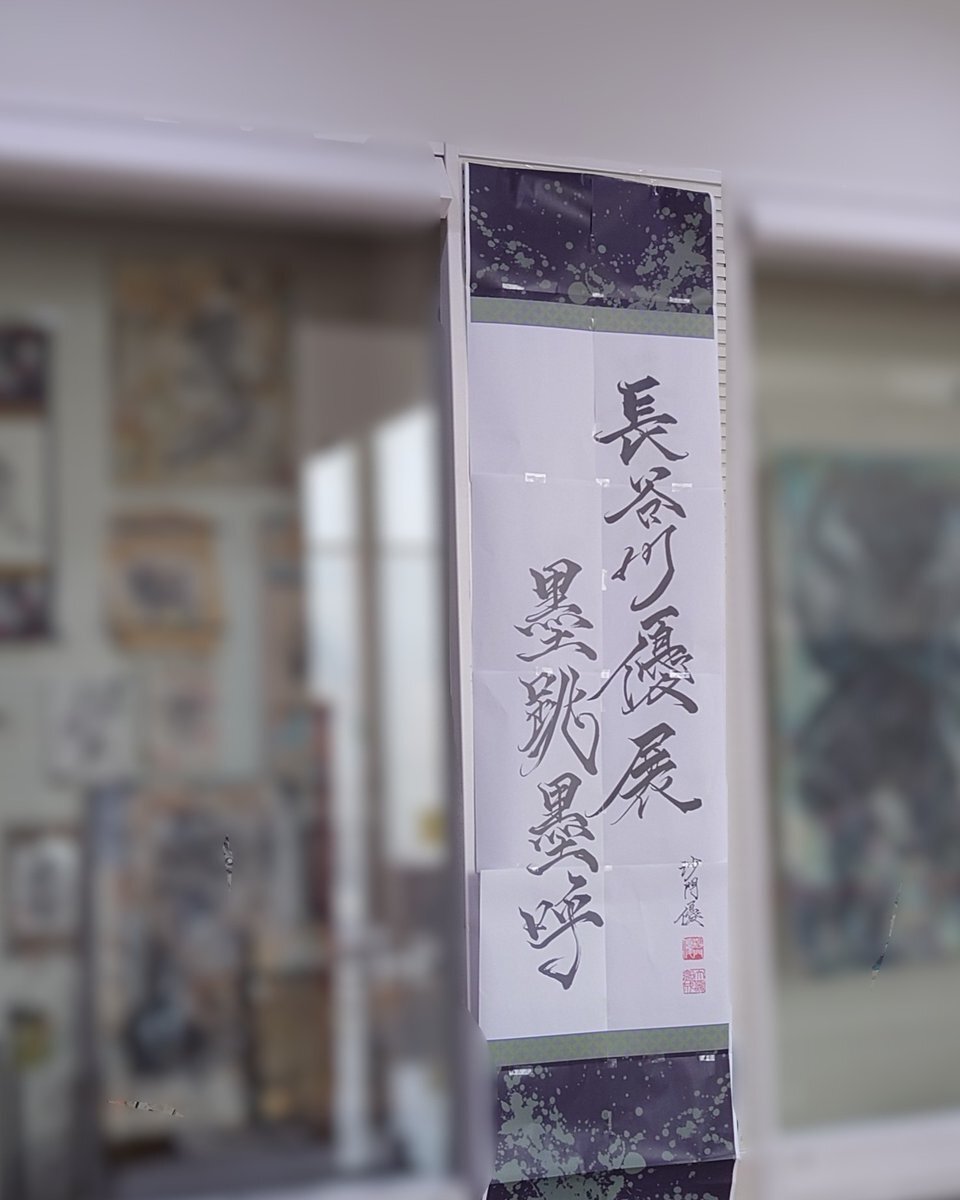 長谷川優展
墨跳墨呼
沙門優